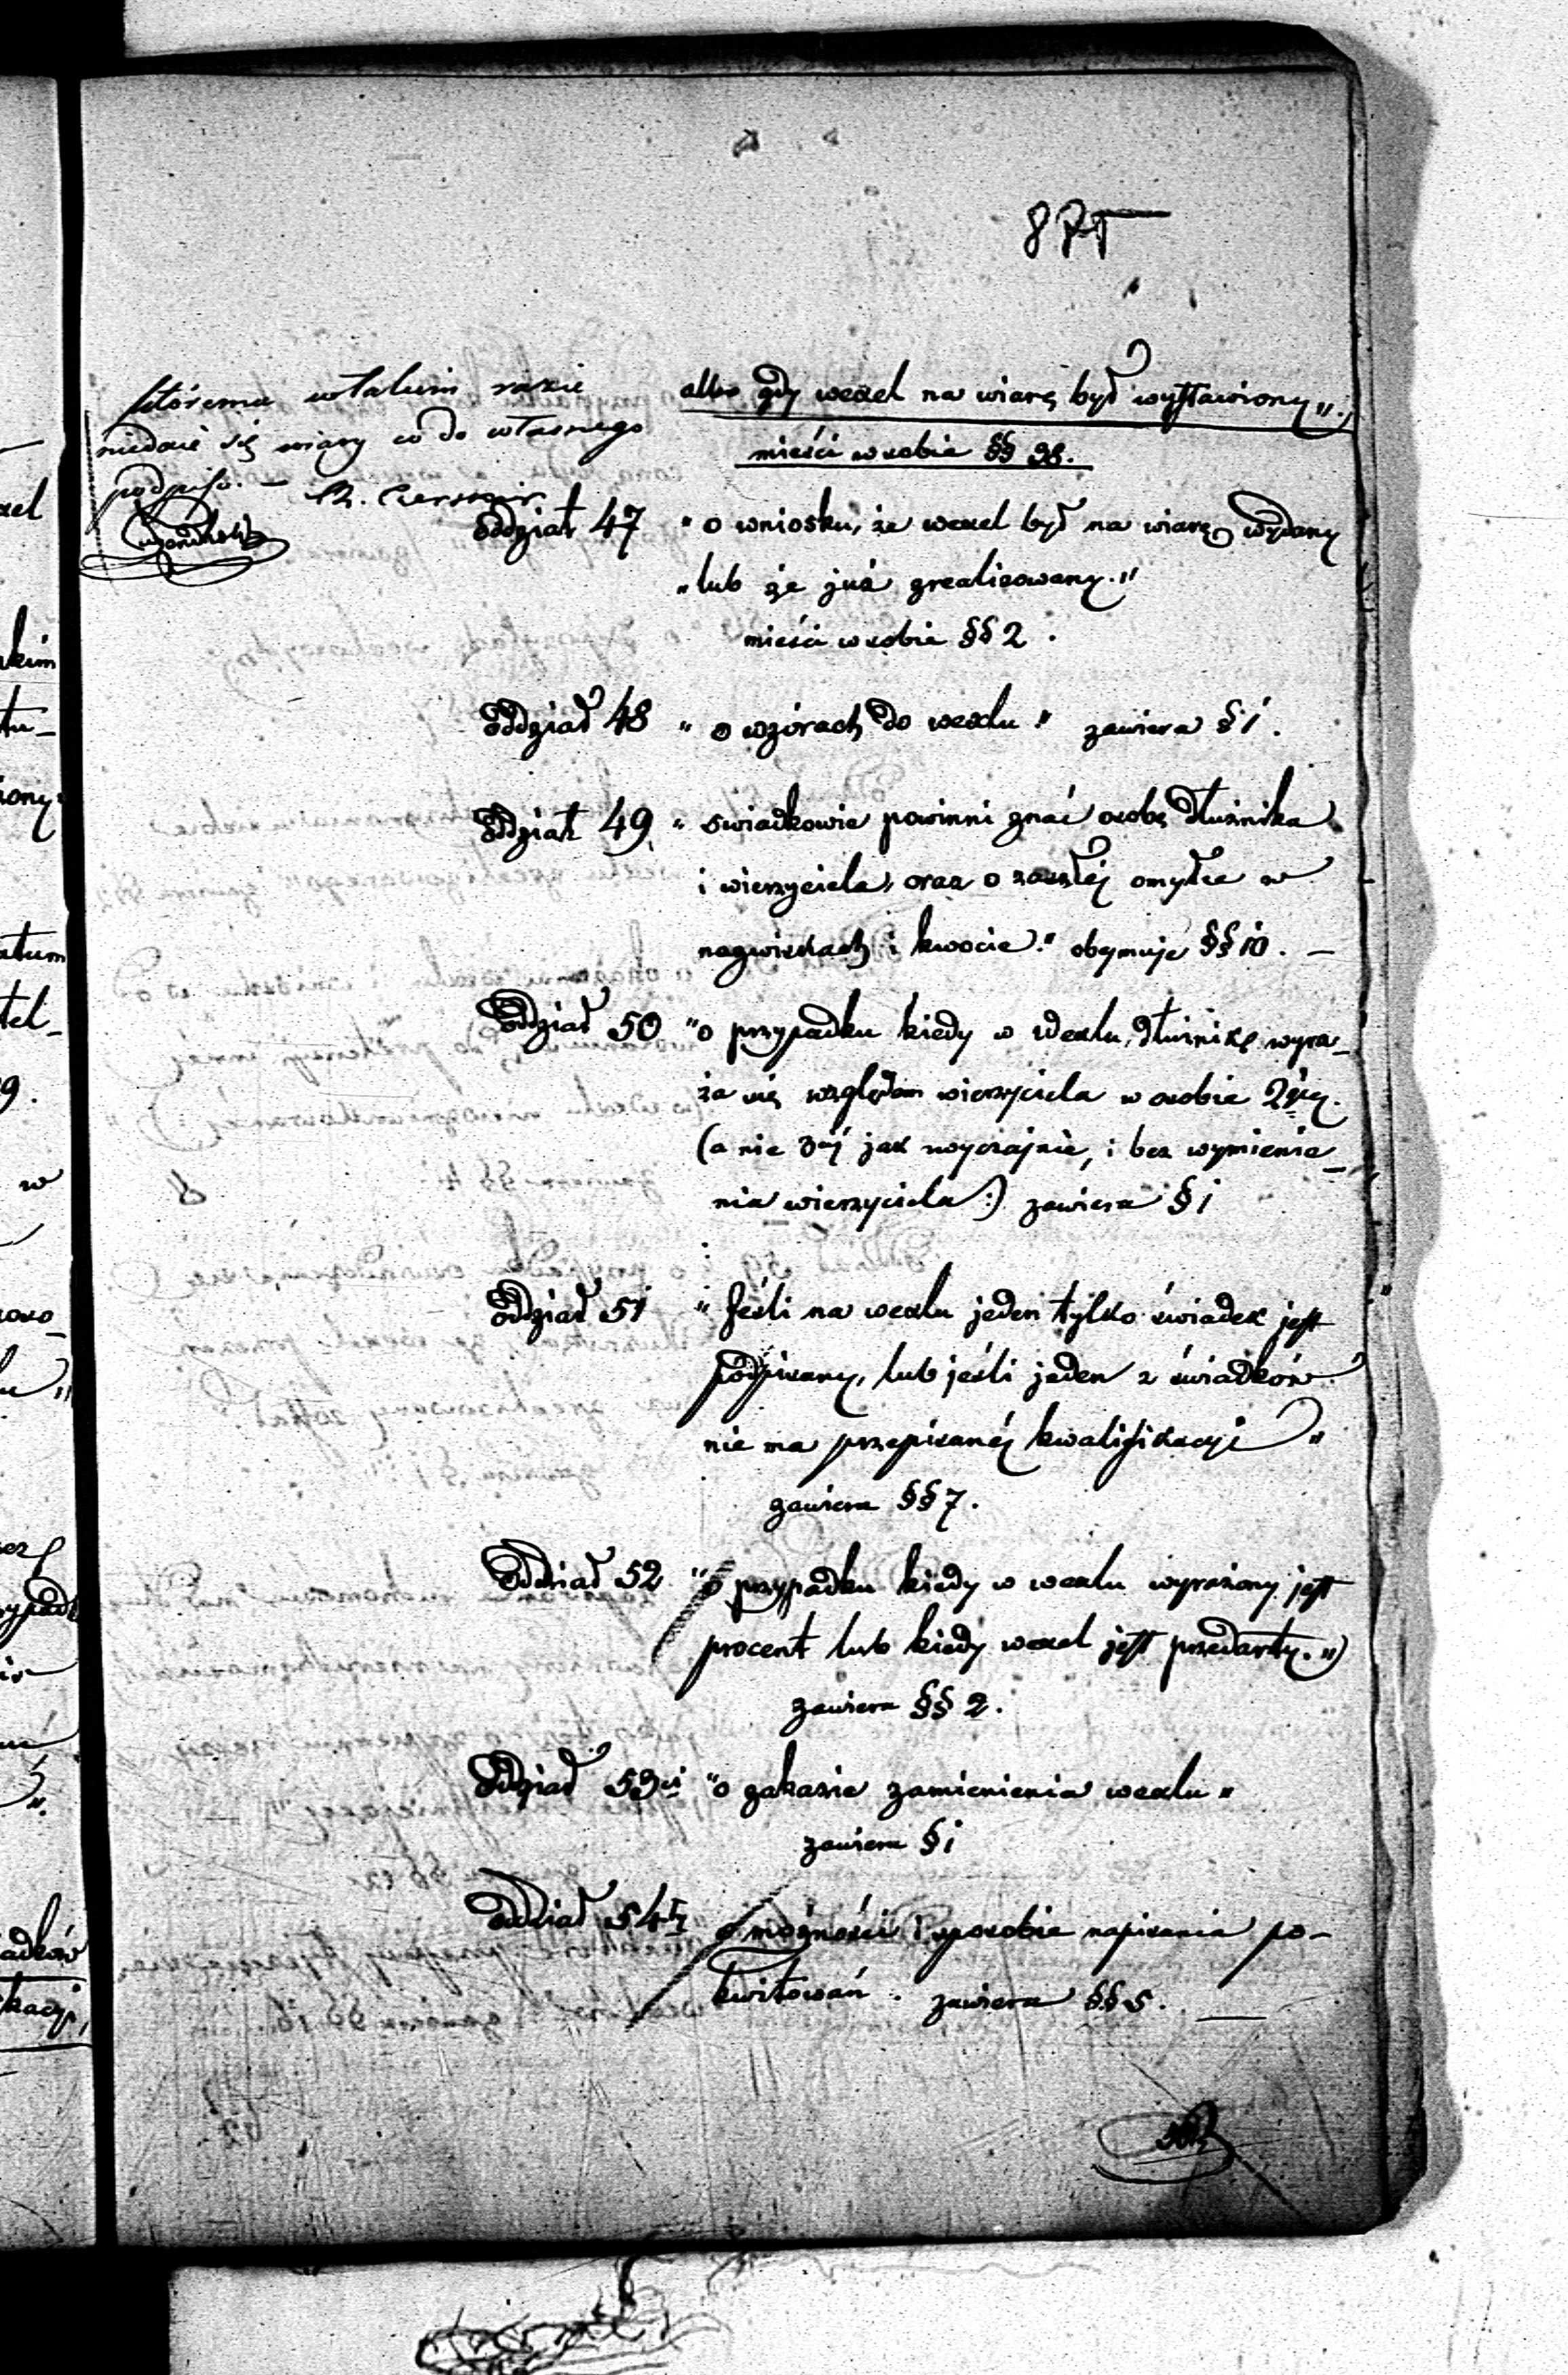 albo gdy wexel na wiarę był wystawiony".,
mieści w sobie §§ 98.
któremu w takim razie
niedaie się wiary co do własnego
podpisu. —
Oddział 47 " o wniosku, że wexel był na wiarę wydany
" lub że już zrealizowany."
mieści w sobie §§ 2.
Oddział 48 " o wzorach do wexlu " zawiera § 1.
Oddział 49 " świadkowie powinni znać osobę dłużnika
i wierzyciela, oraz o zaszłéj omyłce w
nazwiskach i kwocie." obejmuje §§ 10. —
Oddział 50 "o przypadku kiedy w wexlu, dłużnik wyra-
ża się względem wierzyciela w osobie 2giej.
(a nie 3ej jak zwyczajnie, i bez wymienie-
nia wierzyciela:) zawiera § 1
Oddział 51 " Jeśli na wexlu jeden tylko świadek jest
podpisany, lub jeśli jeden z świadków
nie ma przepisanéj kwalifikacyi "
zawiera §§ 7.
Oddział 52 "o przypadku kiedy w wexlu wyrażony jest
procent lub kiedy wexel jest przedarty."
zawiera §§ 2.
Oddział 53ci "o zakazie zamienienia wexlu "
zawiera § 1
Oddział 54ty o możności i sposobie napisania po-
kwitowań. zawiera §§ 5.